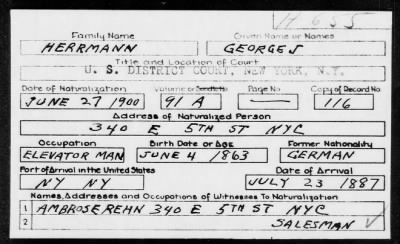 H 655
Family Name
Given Name or Names
HERRMANN
GEORGE J
Title and Location of Court
U. S. DISTRICT COURT, NEW YORK, N.Y.
Date of Naturalization
Volume or Bundle No
Page No
Copy of Record No.
JUNE 27 1900
91 A
116
Address of Naturalized Person
340 E 5TH ST NYC
Occupation
Birth Date or Age
Former Nationality
ELEVATOR MAN
JUNE 4 1863
GERMAN
Port of Arrival in the United States
Date of Arrival
NY NY
JULY 23 1887
Names, Addresses and Occupations of Witnesses To Naturalization
1 AMBROSE REHN 340 E 5TH ST NYC
2 SALESMAN